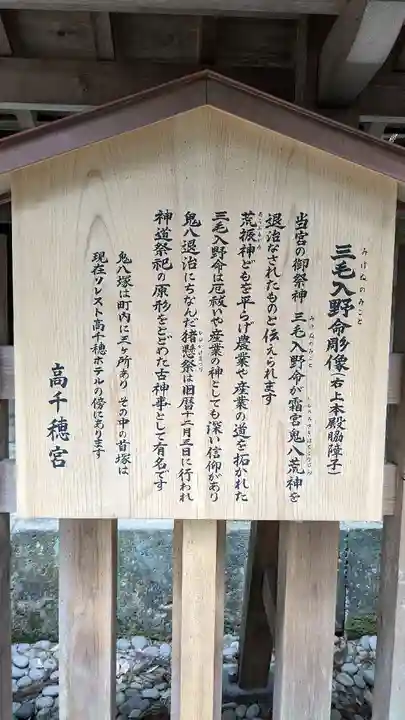 三毛入野命彫像(右上本殿脇障子)
みけぬのみこと
当宮の御祭神 三毛入野命が霜宮鬼八荒神を
みけぬのみこと
退治なされたものと伝えられます
荒振神どもを平らげ農業や産業の道を拓かれた
三毛入野命は厄祓いや産業の神としても深い信仰があり
鬼八退治にちなんだ猪懸祭は旧暦十二月三日に行われ
神道祭祀の原形をとどめた古神事として有名です
鬼八塚は町内に三ヶ所あり その中の首塚は
現在ソレスト高千穂ホテルの傍にあります
高千穂宮